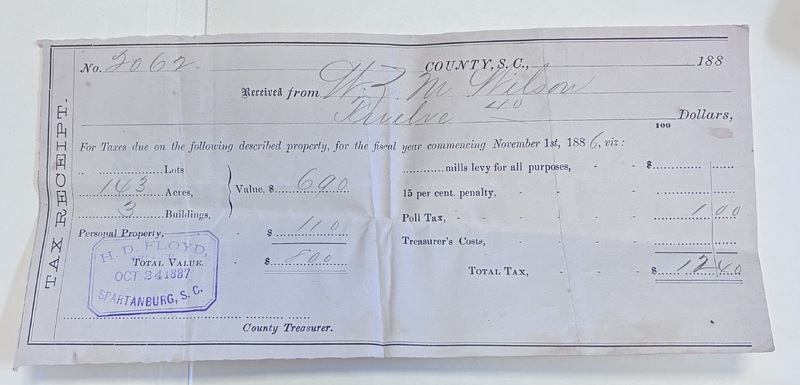 TAX RECEIPT.
No. 2062. COUNTY, S.C., 188
Received from W. M Wilson
Twelve 40/100 Dollars,
For Taxes due on the following described property, for the fiscal year commencing November 1st, 1886, viz:
Lots
143 Acres,
3 Buildings,
Value, $ 690
Personal Property, - $ 110
TOTAL VALUE. - $ 800
H. D. FLOYD,
OCT 24 1887
SPARTANBURG, S. C.
County Treasurer.
mills levy for all purposes, - - $
15 per cent. penalty, - - - -
Poll Tax, - - - - - 1 00
Treasurer's Costs, - - - -
TOTAL TAX, - - - $ 12 40